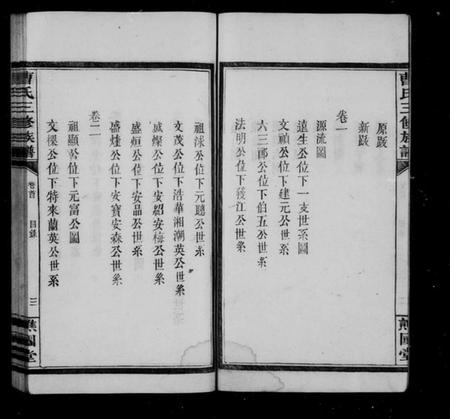 曹氏三修族譜
原跋
新跋
卷一
源流圖
遠生公位下一支世系圖
文禎公位下建元公世系
六三郎公位下伯五公世系
法明公位下筏江公世系
祖球公位下元聰公世系
文茂公位下浩華湘潮英公世系
盛燦公位下安紹安梅公世系
盛烜公位下安品公世系
盛煃公位下安寶安森公世系
卷二
祖顯公位下元富公圖
文樑公位下特來蘭英公世系
曹氏三修族譜
卷首
目錄
三